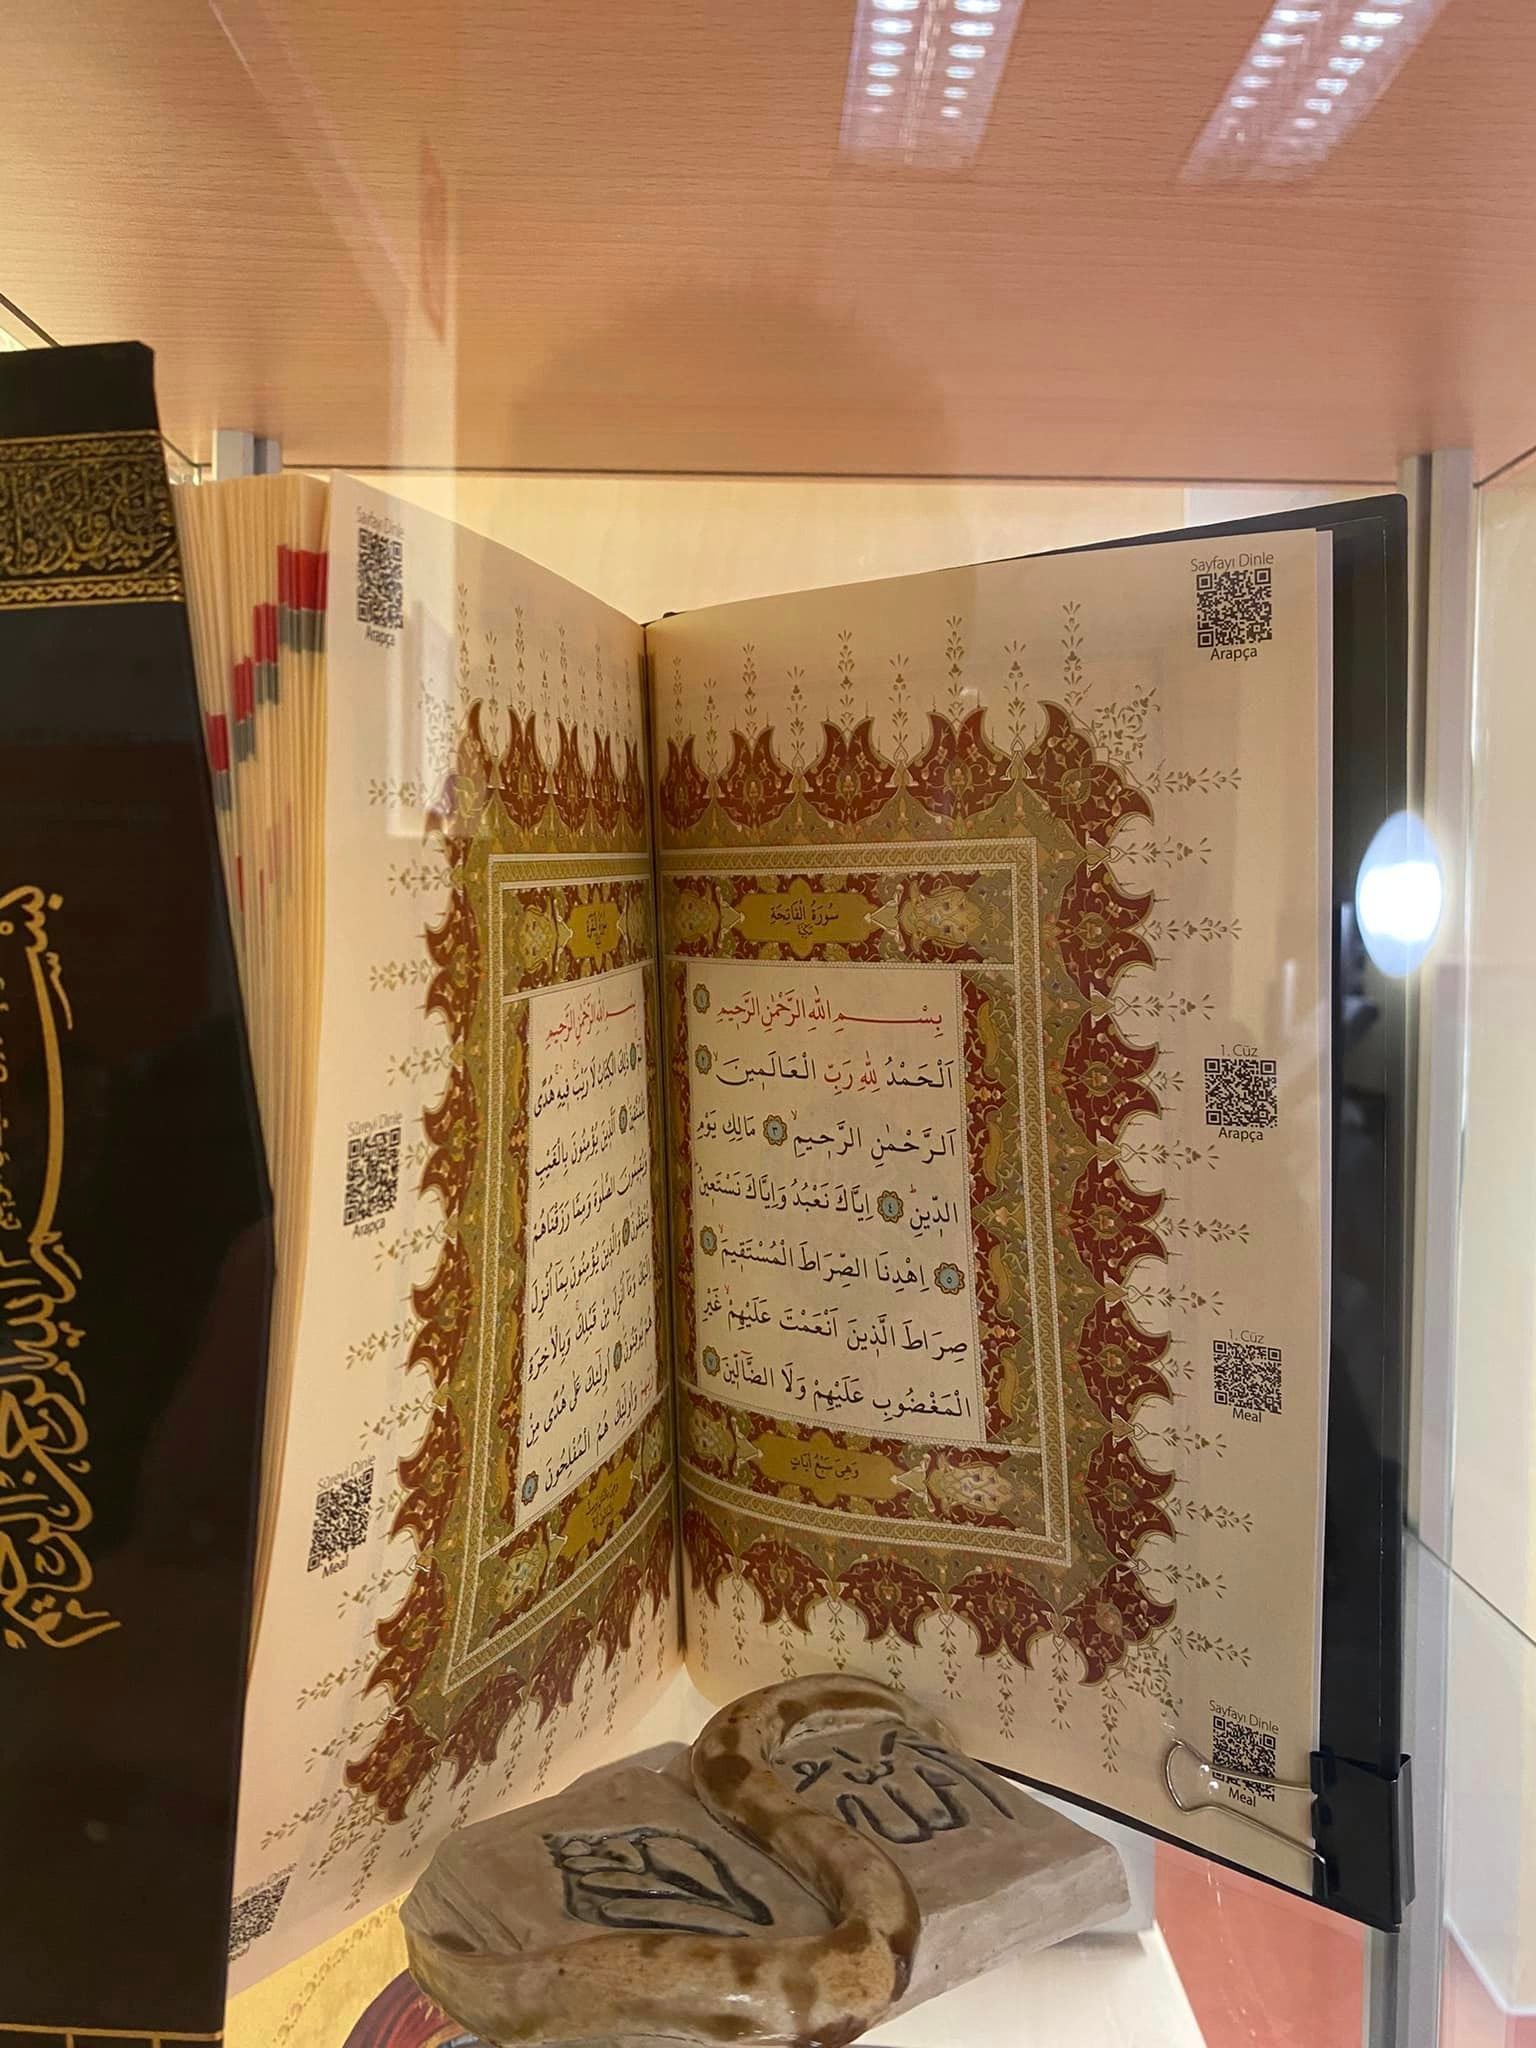 Sayfayı Dinle
Arapça
سُورَةُ الْفَاتِحَةِ
مَكِّيَّةٌ
بِسْمِ اللهِ الرَّحْمٰنِ الرَّحِيمِ ١
اَلْحَمْدُ لِلّٰهِ رَبِّ الْعَالَمِينَ ٢
اَلرَّحْمٰنِ الرَّحِيمِ ٣ مَالِكِ يَوْمِ
الدِّينِ ٤ اِيَّاكَ نَعْبُدُ وَاِيَّاكَ نَسْتَعِينُ
٥ اِهْدِنَا الصِّرَاطَ الْمُسْتَقِيمَ ٦
صِرَاطَ الَّذِينَ اَنْعَمْتَ عَلَيْهِمْ غَيْرِ
الْمَغْضُوبِ عَلَيْهِمْ وَلَا الضَّالِّينَ ٧
وَهِيَ سَبْعُ اٰيَاتٍ
1. Cüz
Arapça
1. Cüz
Meal
Sayfayı Dinle
Meal
Sayfayı Dinle
Arapça
سُورَةُ الْبَقَرَةِ
بِسْمِ اللهِ الرَّحْمٰنِ الرَّحِيمِ
ذٰلِكَ الْكِتَابُ لَا رَيْبَ فِيهِ هُدًى
لِلْمُتَّقِينَ ٢ اَلَّذِينَ يُؤْمِنُونَ بِالْغَيْبِ
وَيُقِيمُونَ الصَّلٰوةَ وَمِمَّا رَزَقْنَاهُمْ
يُنْفِقُونَ ٣ وَالَّذِينَ يُؤْمِنُونَ بِمَا اُنْزِلَ
اِلَيْكَ وَمَا اُنْزِلَ مِنْ قَبْلِكَ وَبِالْاٰخِرَةِ
هُمْ يُوقِنُونَ ٤ اُولٰئِكَ عَلٰى هُدًى مِنْ
رَبِّهِمْ وَاُولٰئِكَ هُمُ الْمُفْلِحُونَ ٥
Sûreyi Dinle
Arapça
Sûreyi Dinle
Meal
بسم الله الرحمن الرحيم
الله